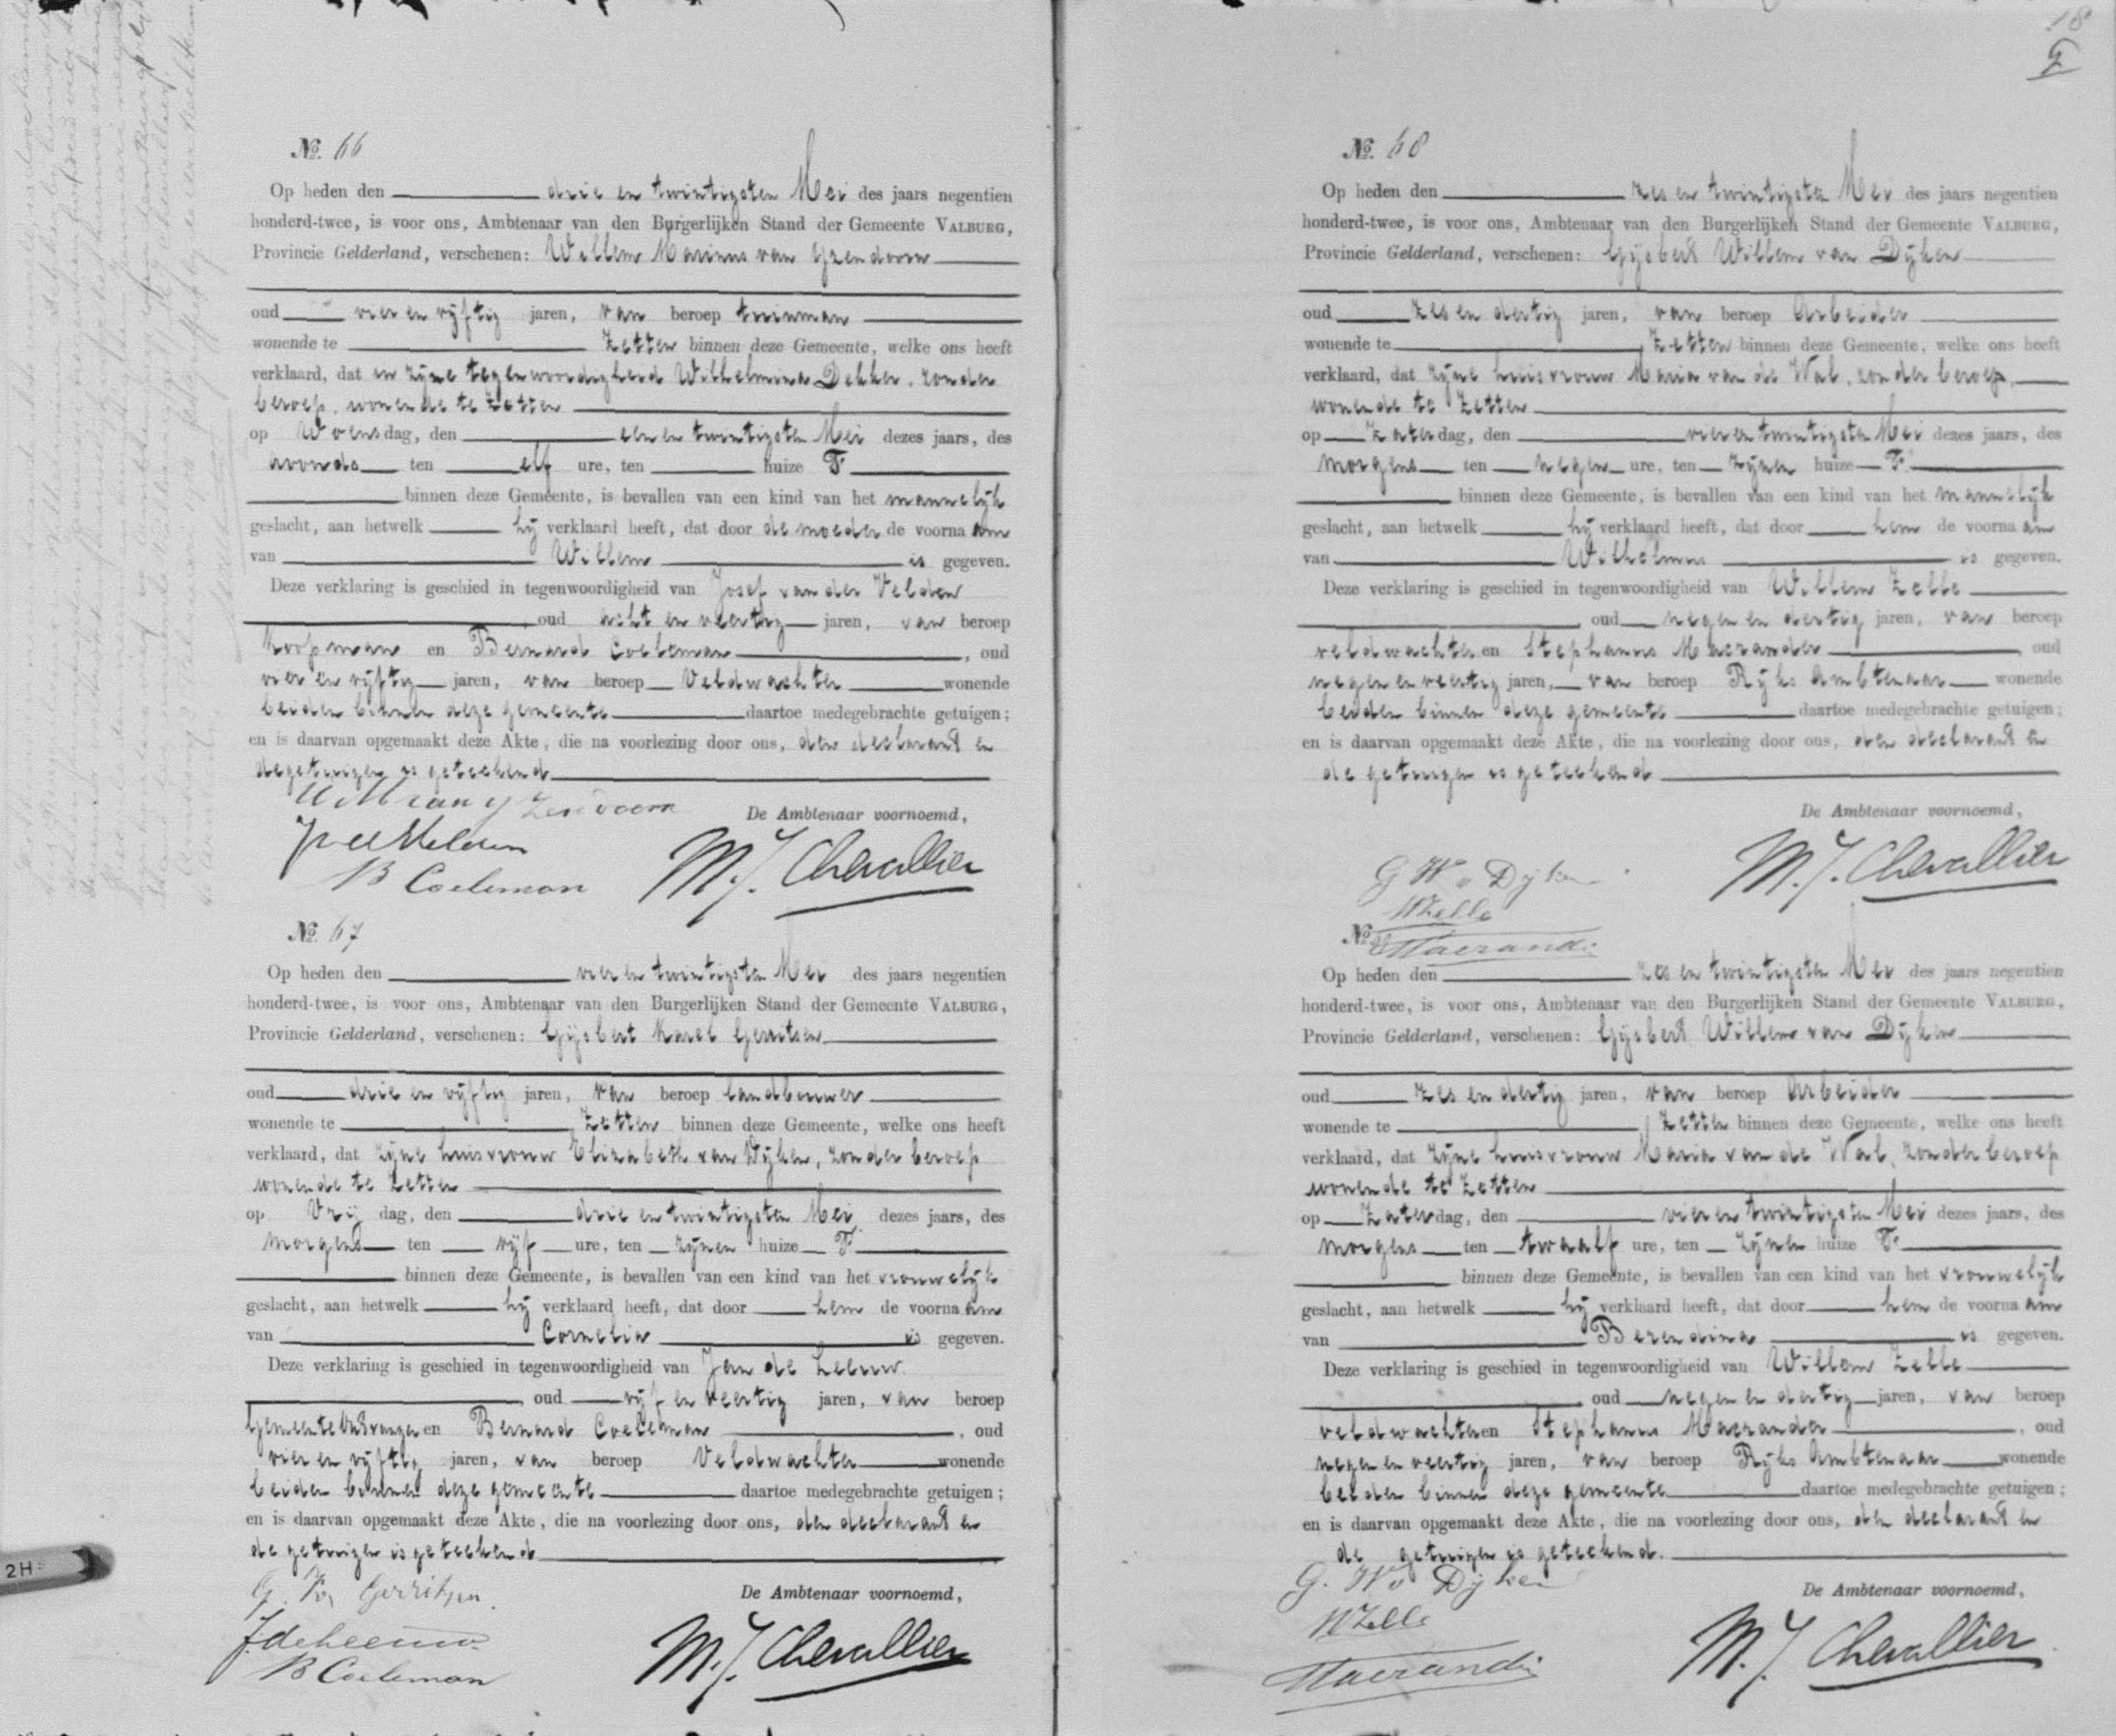 No. 66
Op heden den drie en twintigsten Mei des jaars negentien
honderd-twee, is voor ons, Ambtenaar van den Burgerlijken Stand der Gemeente VALBURG,
Provincie Gelderland, verschenen: Willem Marinus van Yzendoorn
oud vier en vijftig jaren, van beroep tuinman
wonende te Zetten binnen deze Gemeente, welke ons heeft
verklaard, dat in zijne tegenwoordigheid Wilhelmina Dekker, zonder
beroep, wonende te Zetten
op Woensdag, den een en twintigsten Mei dezes jaars, des
avonds ten elf ure, ten huize F
binnen deze Gemeente, is bevallen van een kind van het mannelijk
geslacht, aan hetwelk hij verklaard heeft, dat door de moeder de voornaam
van Willem is gegeven.
Deze verklaring is geschied in tegenwoordigheid van Josef van der Velden
oud acht en veertig jaren, van beroep
koopman en Bernard Coeleman, oud
vier en vijftig jaren, van beroep Veldwachter wonende
beiden binnen deze gemeente daartoe medegebrachte getuigen;
en is daarvan opgemaakt deze Akte, die na voorlezing door ons, den declarant en
de getuigen is geteekend
W M van Yzendoorn
De Ambtenaar voornoemd,
J vd Velden
B Coeleman
M. J. Chevallier
No. 67
Op heden den vier en twintigsten Mei des jaars negentien
honderd-twee, is voor ons, Ambtenaar van den Burgerlijken Stand der Gemeente VALBURG,
Provincie Gelderland, verschenen: Gijsbert Karel Gerritsen
oud drie en vijftig jaren, van beroep landbouwer
wonende te Zetten binnen deze Gemeente, welke ons heeft
verklaard, dat zijne huisvrouw Elizabeth van Dijken, zonder beroep
wonende te Zetten
op Vrijdag, den drie en twintigsten Mei dezes jaars, des
morgens ten vijf ure, ten zijnen huize F
binnen deze Gemeente, is bevallen van een kind van het vrouwelijk
geslacht, aan hetwelk hij verklaard heeft, dat door hem de voornaam
van Cornelia is gegeven.
Deze verklaring is geschied in tegenwoordigheid van Jan de Leeuw
oud vijf en veertig jaren, van beroep
Gemeente Ontvanger en Bernard Coeleman, oud
vier en vijftig jaren, van beroep Veldwachter wonende
beiden binnen deze gemeente daartoe medegebrachte getuigen;
en is daarvan opgemaakt deze Akte, die na voorlezing door ons, den declarant en
de getuigen is geteekend
G. K. Gerritsen.
De Ambtenaar voornoemd,
J. de Leeuw
B Coeleman
M. J. Chevallier
2H
18
No. 68
Op heden den zes en twintigsten Mei des jaars negentien
honderd-twee, is voor ons, Ambtenaar van den Burgerlijken Stand der Gemeente VALBURG,
Provincie Gelderland, verschenen: Gijsbert Willem van Dijken
oud zes en dertig jaren, van beroep Arbeider
wonende te Zetten binnen deze Gemeente, welke ons heeft
verklaard, dat zijne huisvrouw Maria van de Wal, zonder beroep,
wonende te Zetten
op Zaterdag, den vier en twintigsten Mei dezes jaars, des
morgens ten negen ure, ten zijnen huize F
binnen deze Gemeente, is bevallen van een kind van het mannelijk
geslacht, aan hetwelk hij verklaard heeft, dat door hem de voornaam
van Wilhelmus is gegeven.
Deze verklaring is geschied in tegenwoordigheid van Willem Zelle
oud negen en dertig jaren, van beroep
veldwachter en Stephanus Macrander oud
negen en veertig jaren, van beroep Rijks Ambtenaar wonende
beiden binnen deze gemeente daartoe medegebrachte getuigen;
en is daarvan opgemaakt deze Akte, die na voorlezing door ons, den declarant en
de getuigen is geteekend
De Ambtenaar voornoemd,
G W v Dijken
M. J. Chevallier
W Zelle
No.
Op heden den zes en twintigsten Mei des jaars negentien
honderd-twee, is voor ons, Ambtenaar van den Burgerlijken Stand der Gemeente VALBURG,
Provincie Gelderland, verschenen: Gijsbert Willem van Dijken
oud zes en dertig jaren, van beroep Arbeider
wonende te Zetten binnen deze Gemeente, welke ons heeft
verklaard, dat zijne huisvrouw Maria van de Wal, zonder beroep
wonende te Zetten
op Zaterdag, den vier en twintigsten Mei dezes jaars, des
morgens ten twaalf ure, ten zijnen huize F
binnen deze Gemeente, is bevallen van een kind van het vrouwelijk
geslacht, aan hetwelk hij verklaard heeft, dat door hem de voornaam
van Berendina is gegeven.
Deze verklaring is geschied in tegenwoordigheid van Willem Zelle
oud negen en dertig jaren, van beroep
veldwachter en Stephanus Macrander, oud
negen en veertig jaren, van beroep Rijks Ambtenaar wonende
beiden binnen deze gemeente daartoe medegebrachte getuigen;
en is daarvan opgemaakt deze Akte, die na voorlezing door ons, den declarant en
de getuigen is geteekend.
G. W v Dijken
De Ambtenaar voornoemd,
W Zelle
M. J. Chevallier